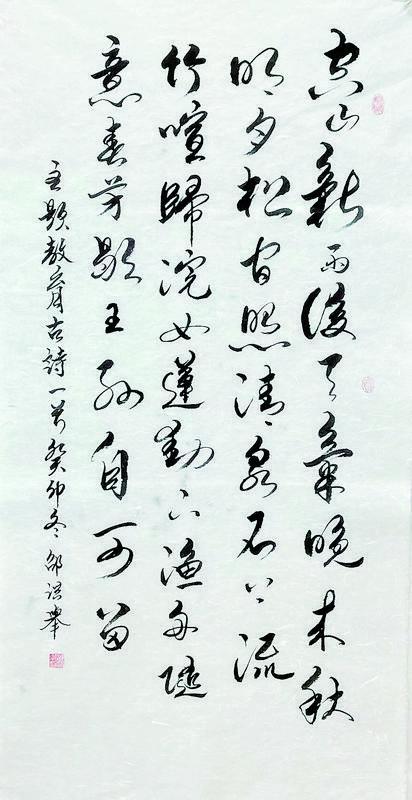 空山新雨後天氣晚来秋
明月松間照清泉石上流
竹喧歸浣女蓮動下漁舟隨
意春芳歇王孫自可留
主題教育古詩一首癸卯冬邵洪舉